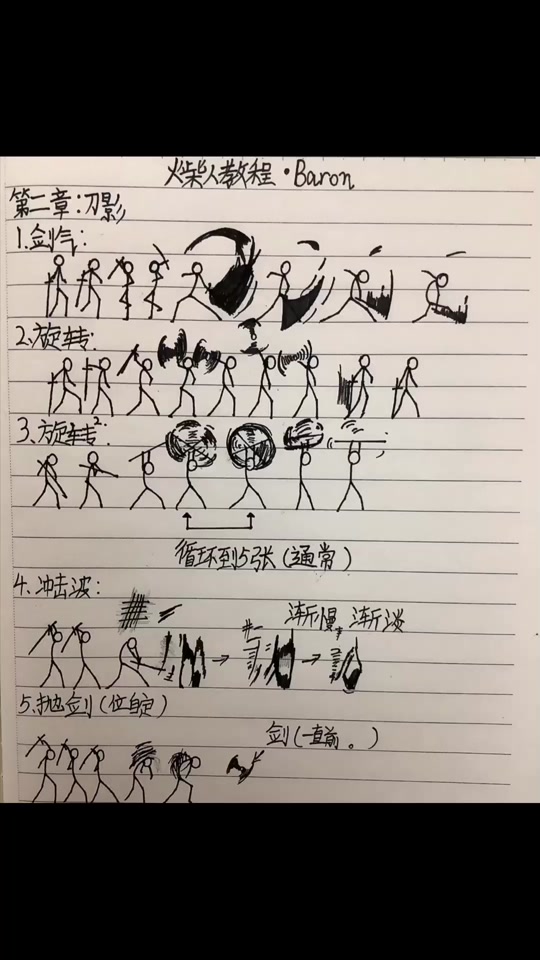 火柴人教程·Baron
第二章:刀影
1.剑气:
2.旋转:
3.旋转²:
循环到5张(通常)
4.冲击波:
渐慢,渐淡
5.抛剑(位自定)
剑(一直前。)